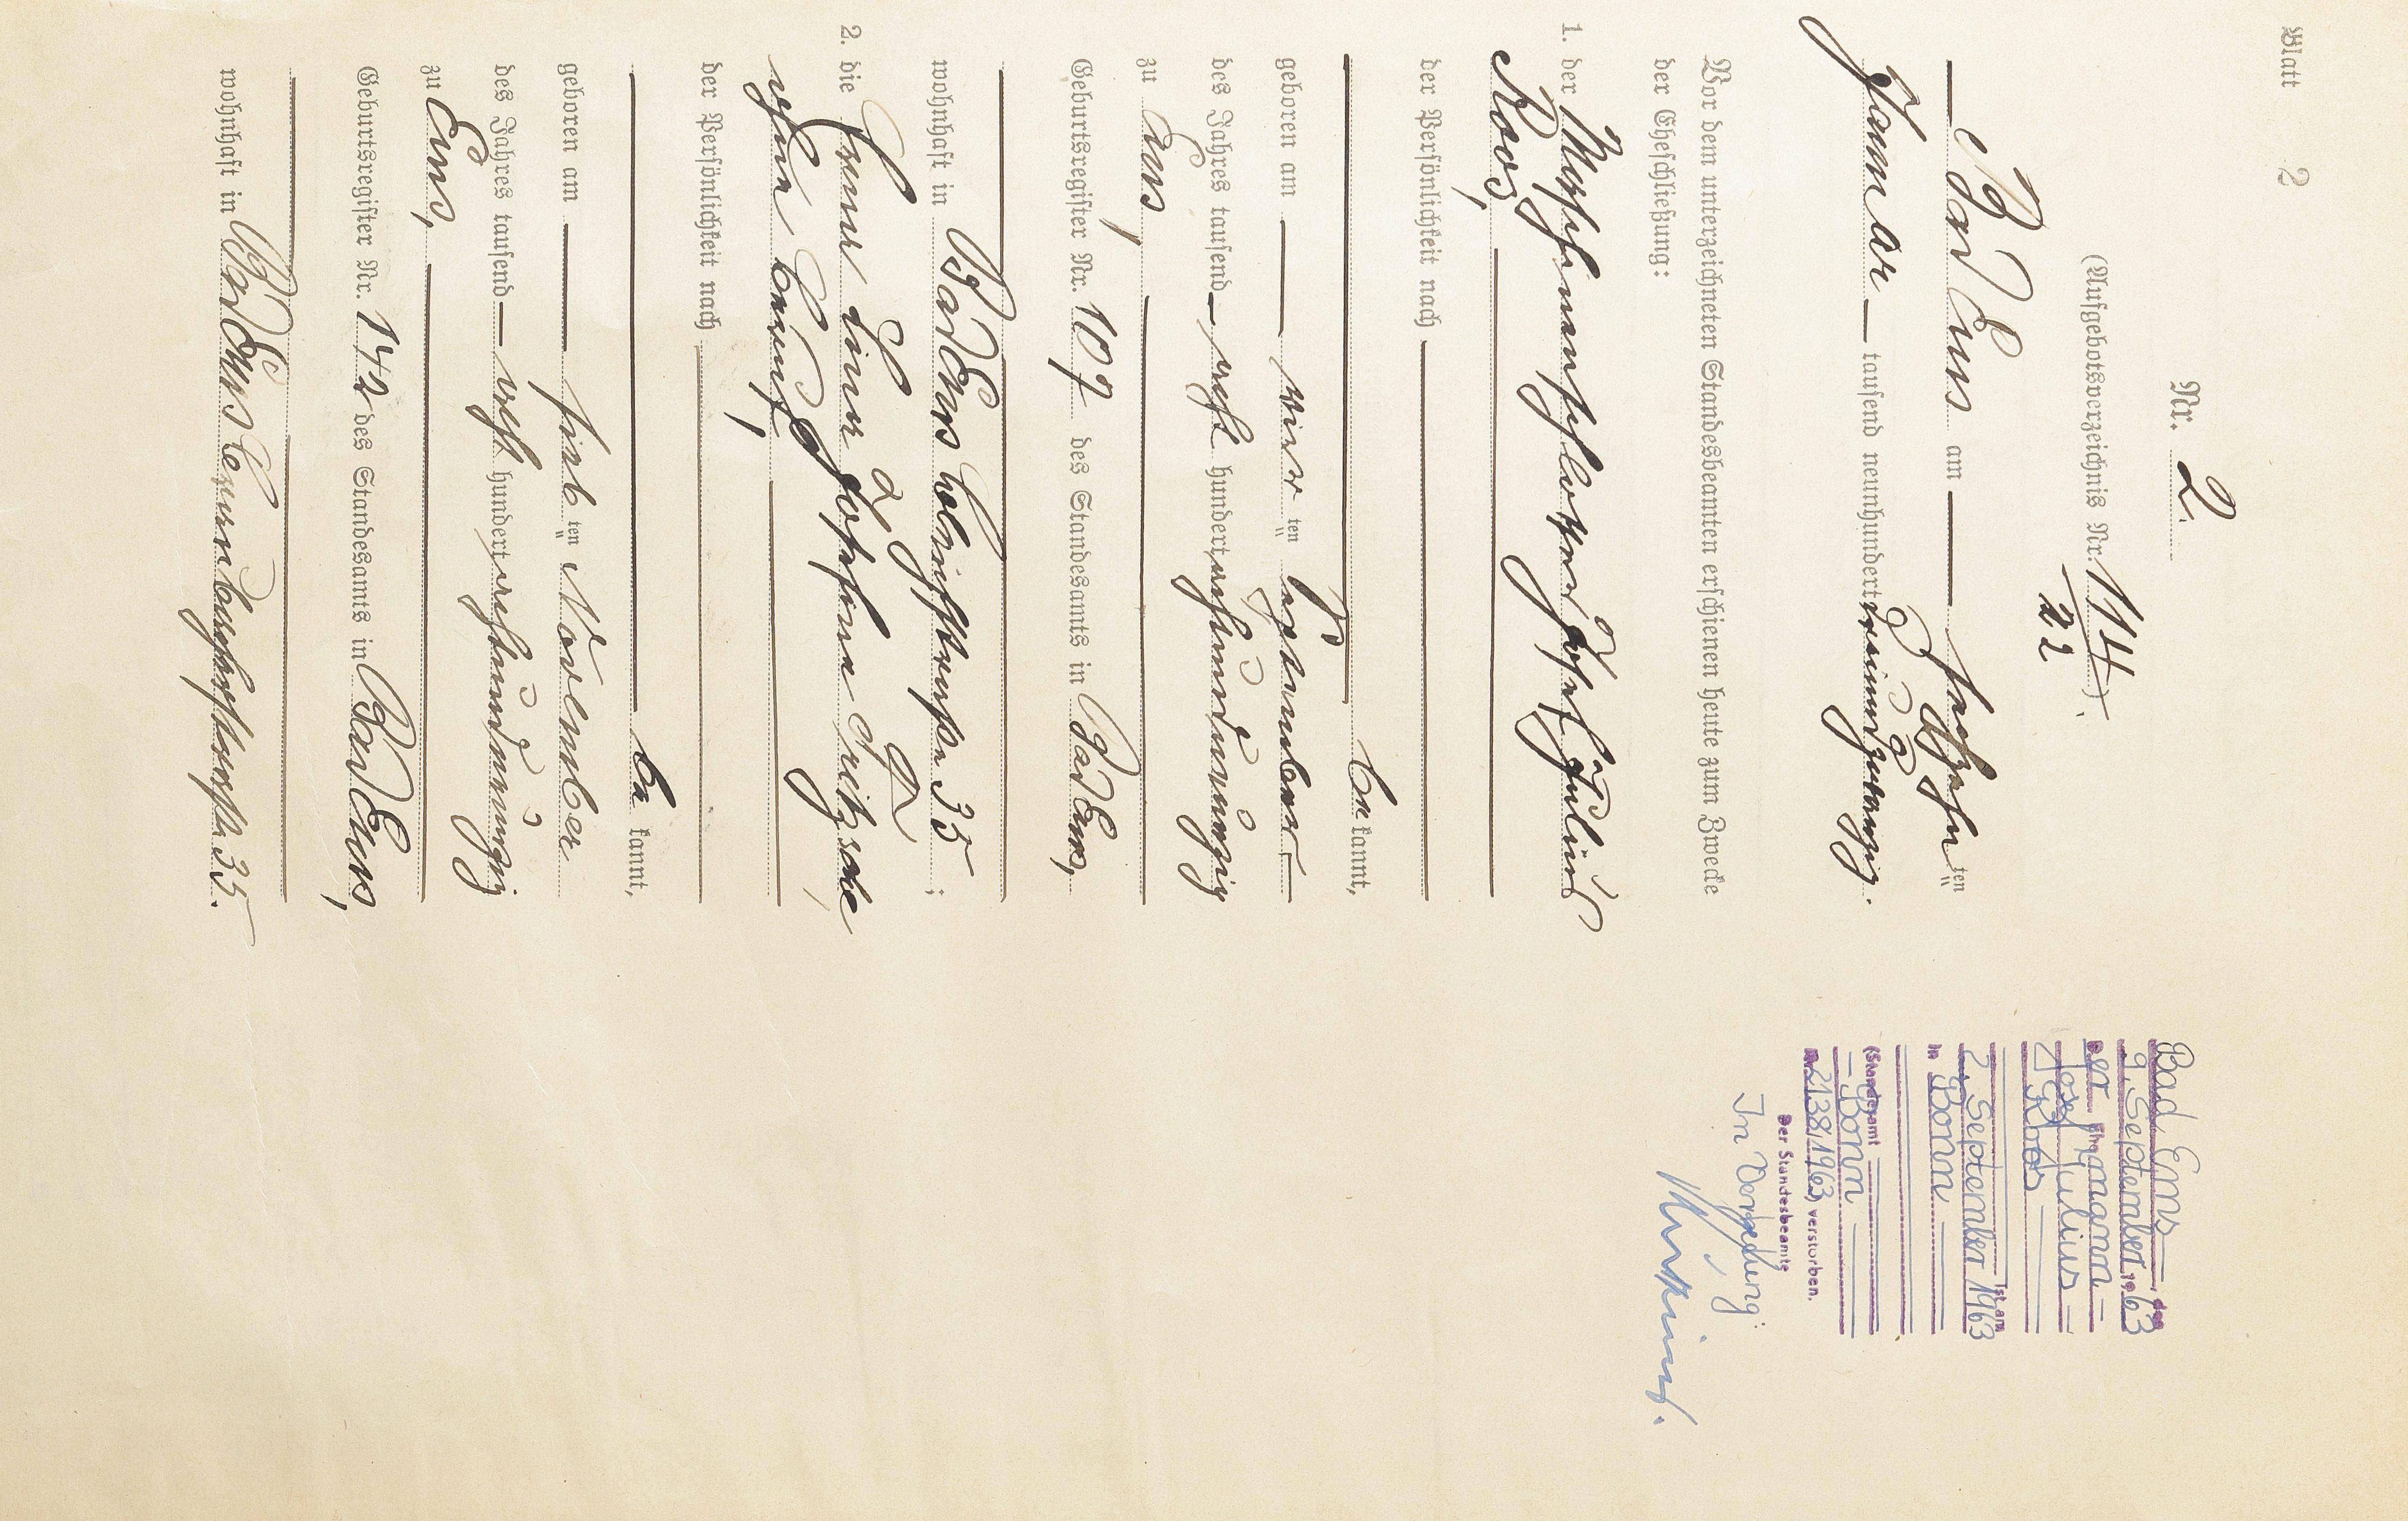 Blatt 2
Nr. 2.
(Aufgebotsverzeichnis Nr. 114)
22
Bad Ems am sechszehn ten
Januar tausend neunhundert dreiundzwanzig.
Vor dem unterzeichneten Standesbeamten erschienen heute zum Zwecke
der Eheschließung:
1. der Maschinenschlosser Josef Julius
Roos,
der Persönlichkeit nach
be kannt,
geboren am vier ten September
des Jahres tausend acht hundert achtundneunzig
zu Ems,
Geburtsregister Nr. 107 des Standesamts in Bad Ems,
wohnhaft in Bad Ems Coblenzerstraße 35;
2. die Anna Lina Josefine Fritzsche,
ohne Beruf,
der Persönlichkeit nach
be kannt,
geboren am sieb ten November
des Jahres tausend acht hundert achtundneunzig
zu Ems,
Geburtsregister Nr. 142 des Standesamts in Bad Ems,
wohnhaft in Bad Ems 35.
Bad Ems, den
9. September 1963
Der Ehemann
Josef Julius
Roos
ist am
2. September 1963
in Bonn
(Standesamt
Bonn
Nr. 2138/1963) verstorben.
Der Standesbeamte
In Vertretung: